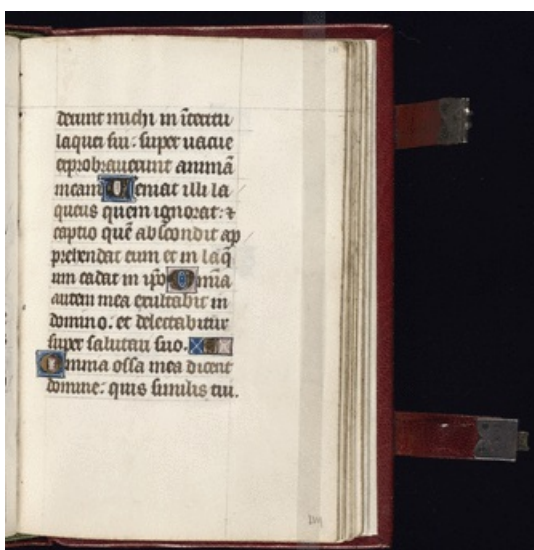 derunt michi in īteritū
laquei sui: super uacue
exprobrauerunt animā
meam Ueniat illi la
queus quem ignorat: ⁊
captio quē abscondit ap
prehendat eum et in laq̄
um cadat in ip̄o Anima
autem mea exultabit in
domino: et delectabitur
super salutari suo.
Omnia ossa mea dicent
domine: quis similis tui.